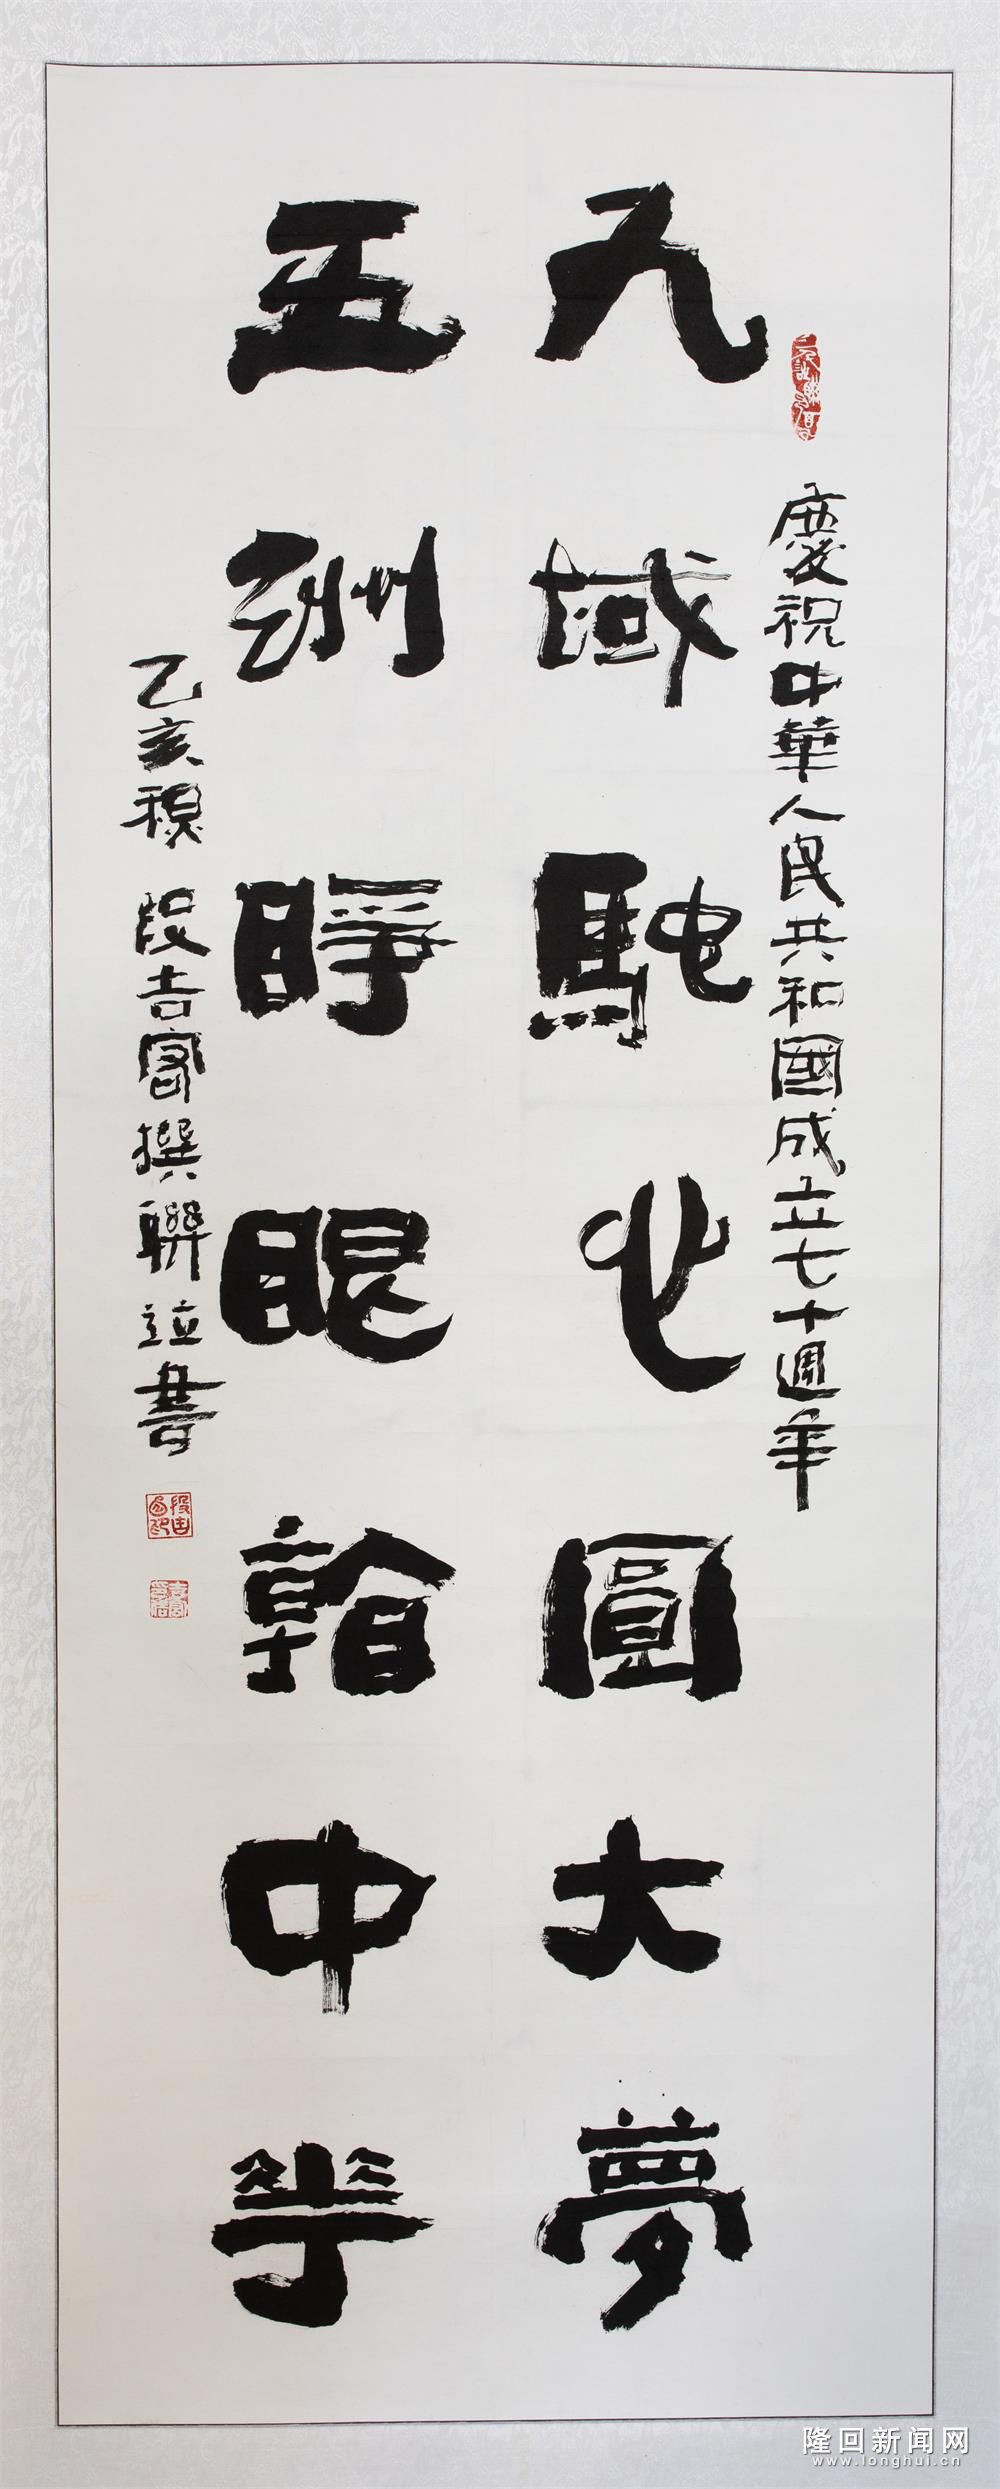 慶祝中華人民共和國成立七十週年
九域馳心圓大夢
五洲睜眼看中華
己亥 段吉撰聯並書
隆回新闻网
www.longhui.cn